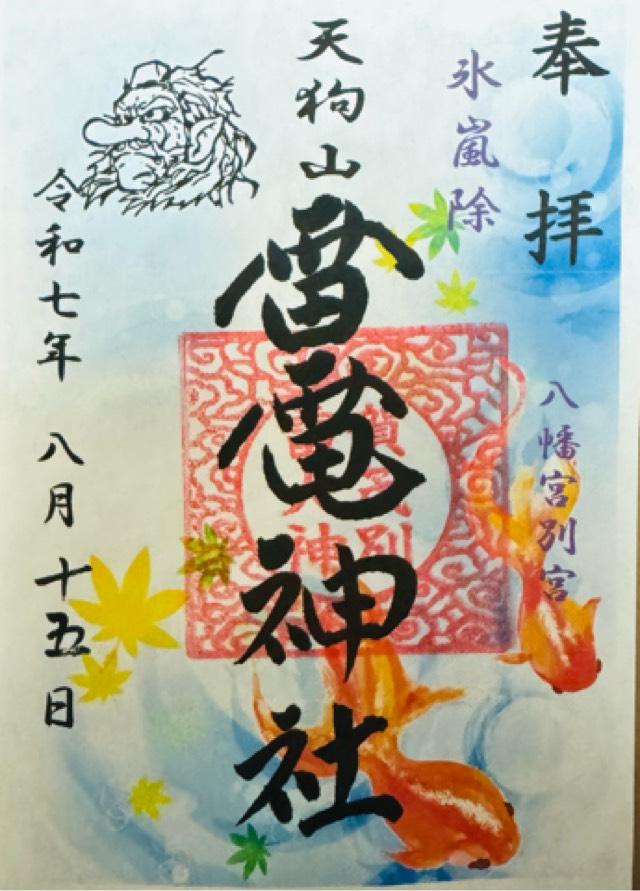 奉拝
八幡宮別宮
氷嵐除
天狗山
雷電神社
令和七年 八月十五日